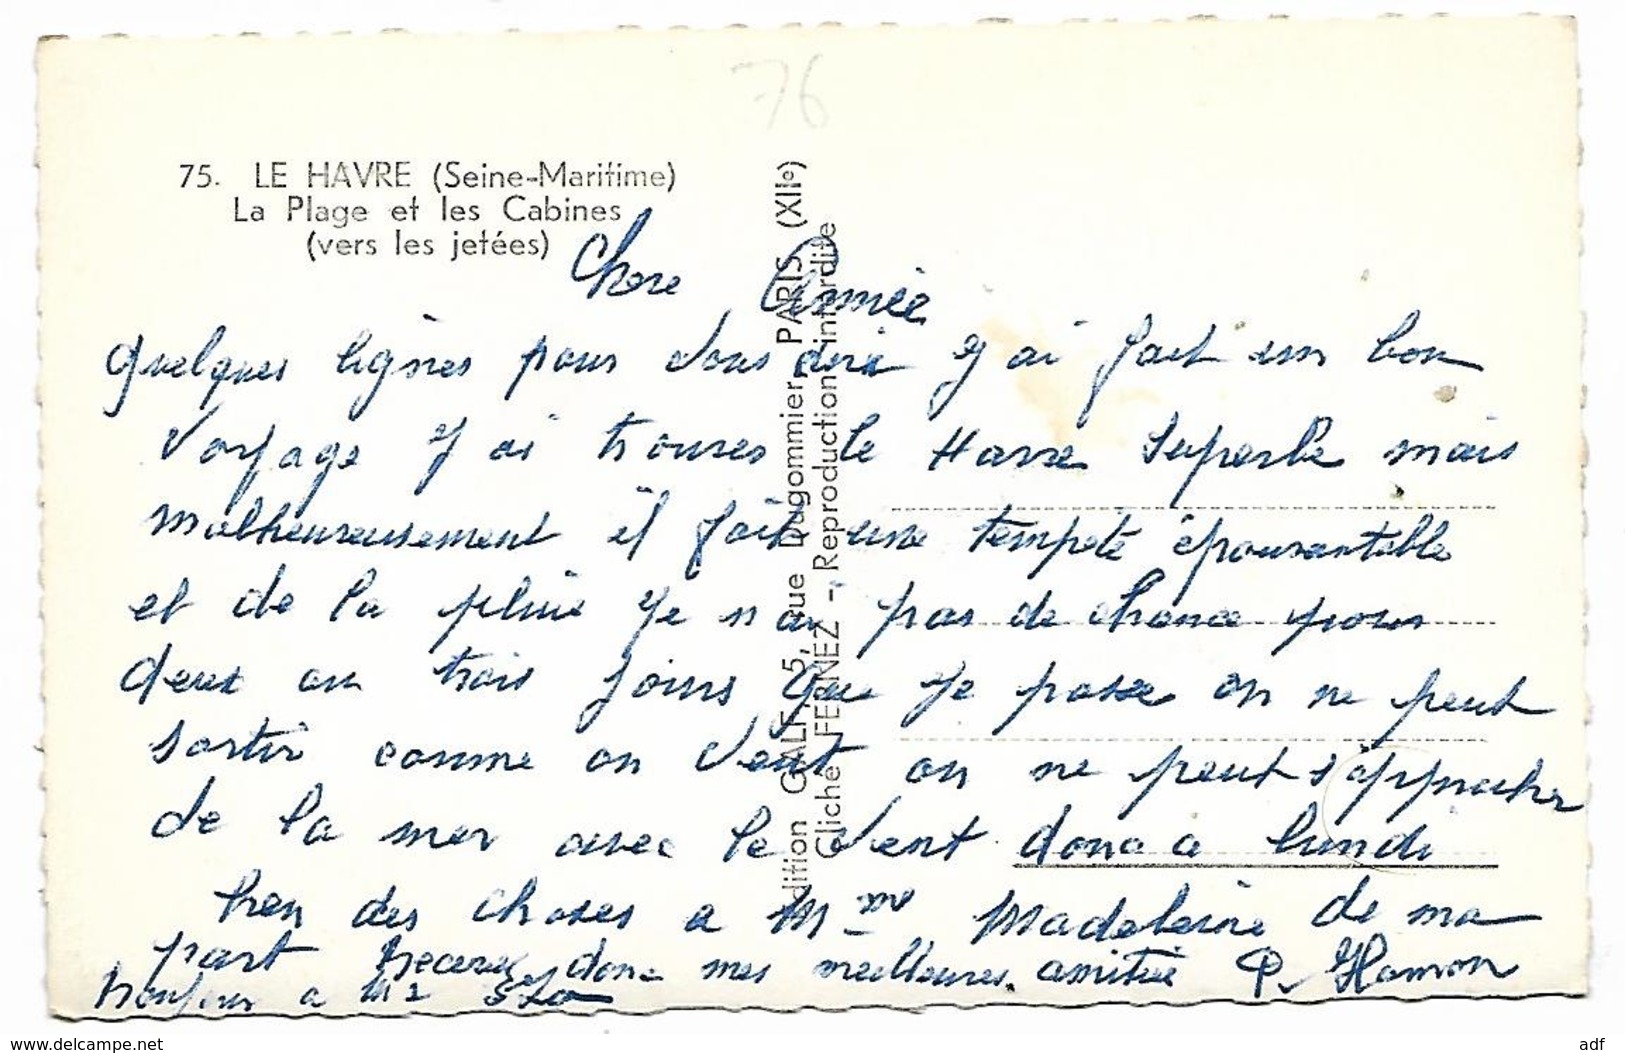 76
75. LE HAVRE (Seine-Maritime)
La Plage et les Cabines
(vers les jetées)
Edition GALF, 5, rue Dugommier, PARIS (XIIe)
Cliché FERNEZ - Reproduction interdite
Chere Aimée
quelques lignes pour vous dire j ai fait un bon
voyage j ai trouves le Havre superbe mais
malheureusement il fait une tempete épouvantable
et de la pluie je n ai pas de chance pour
deux ou trois jours que je passe on ne peut
sortir comme on veut on ne peut s'approcher
de la mer avec le vent donc a lundi
bien des choses a Mme Madeleine de ma
part recevez donc mes meilleures amitié P. Hamon
bonjour a
www.delcampe.net
adf